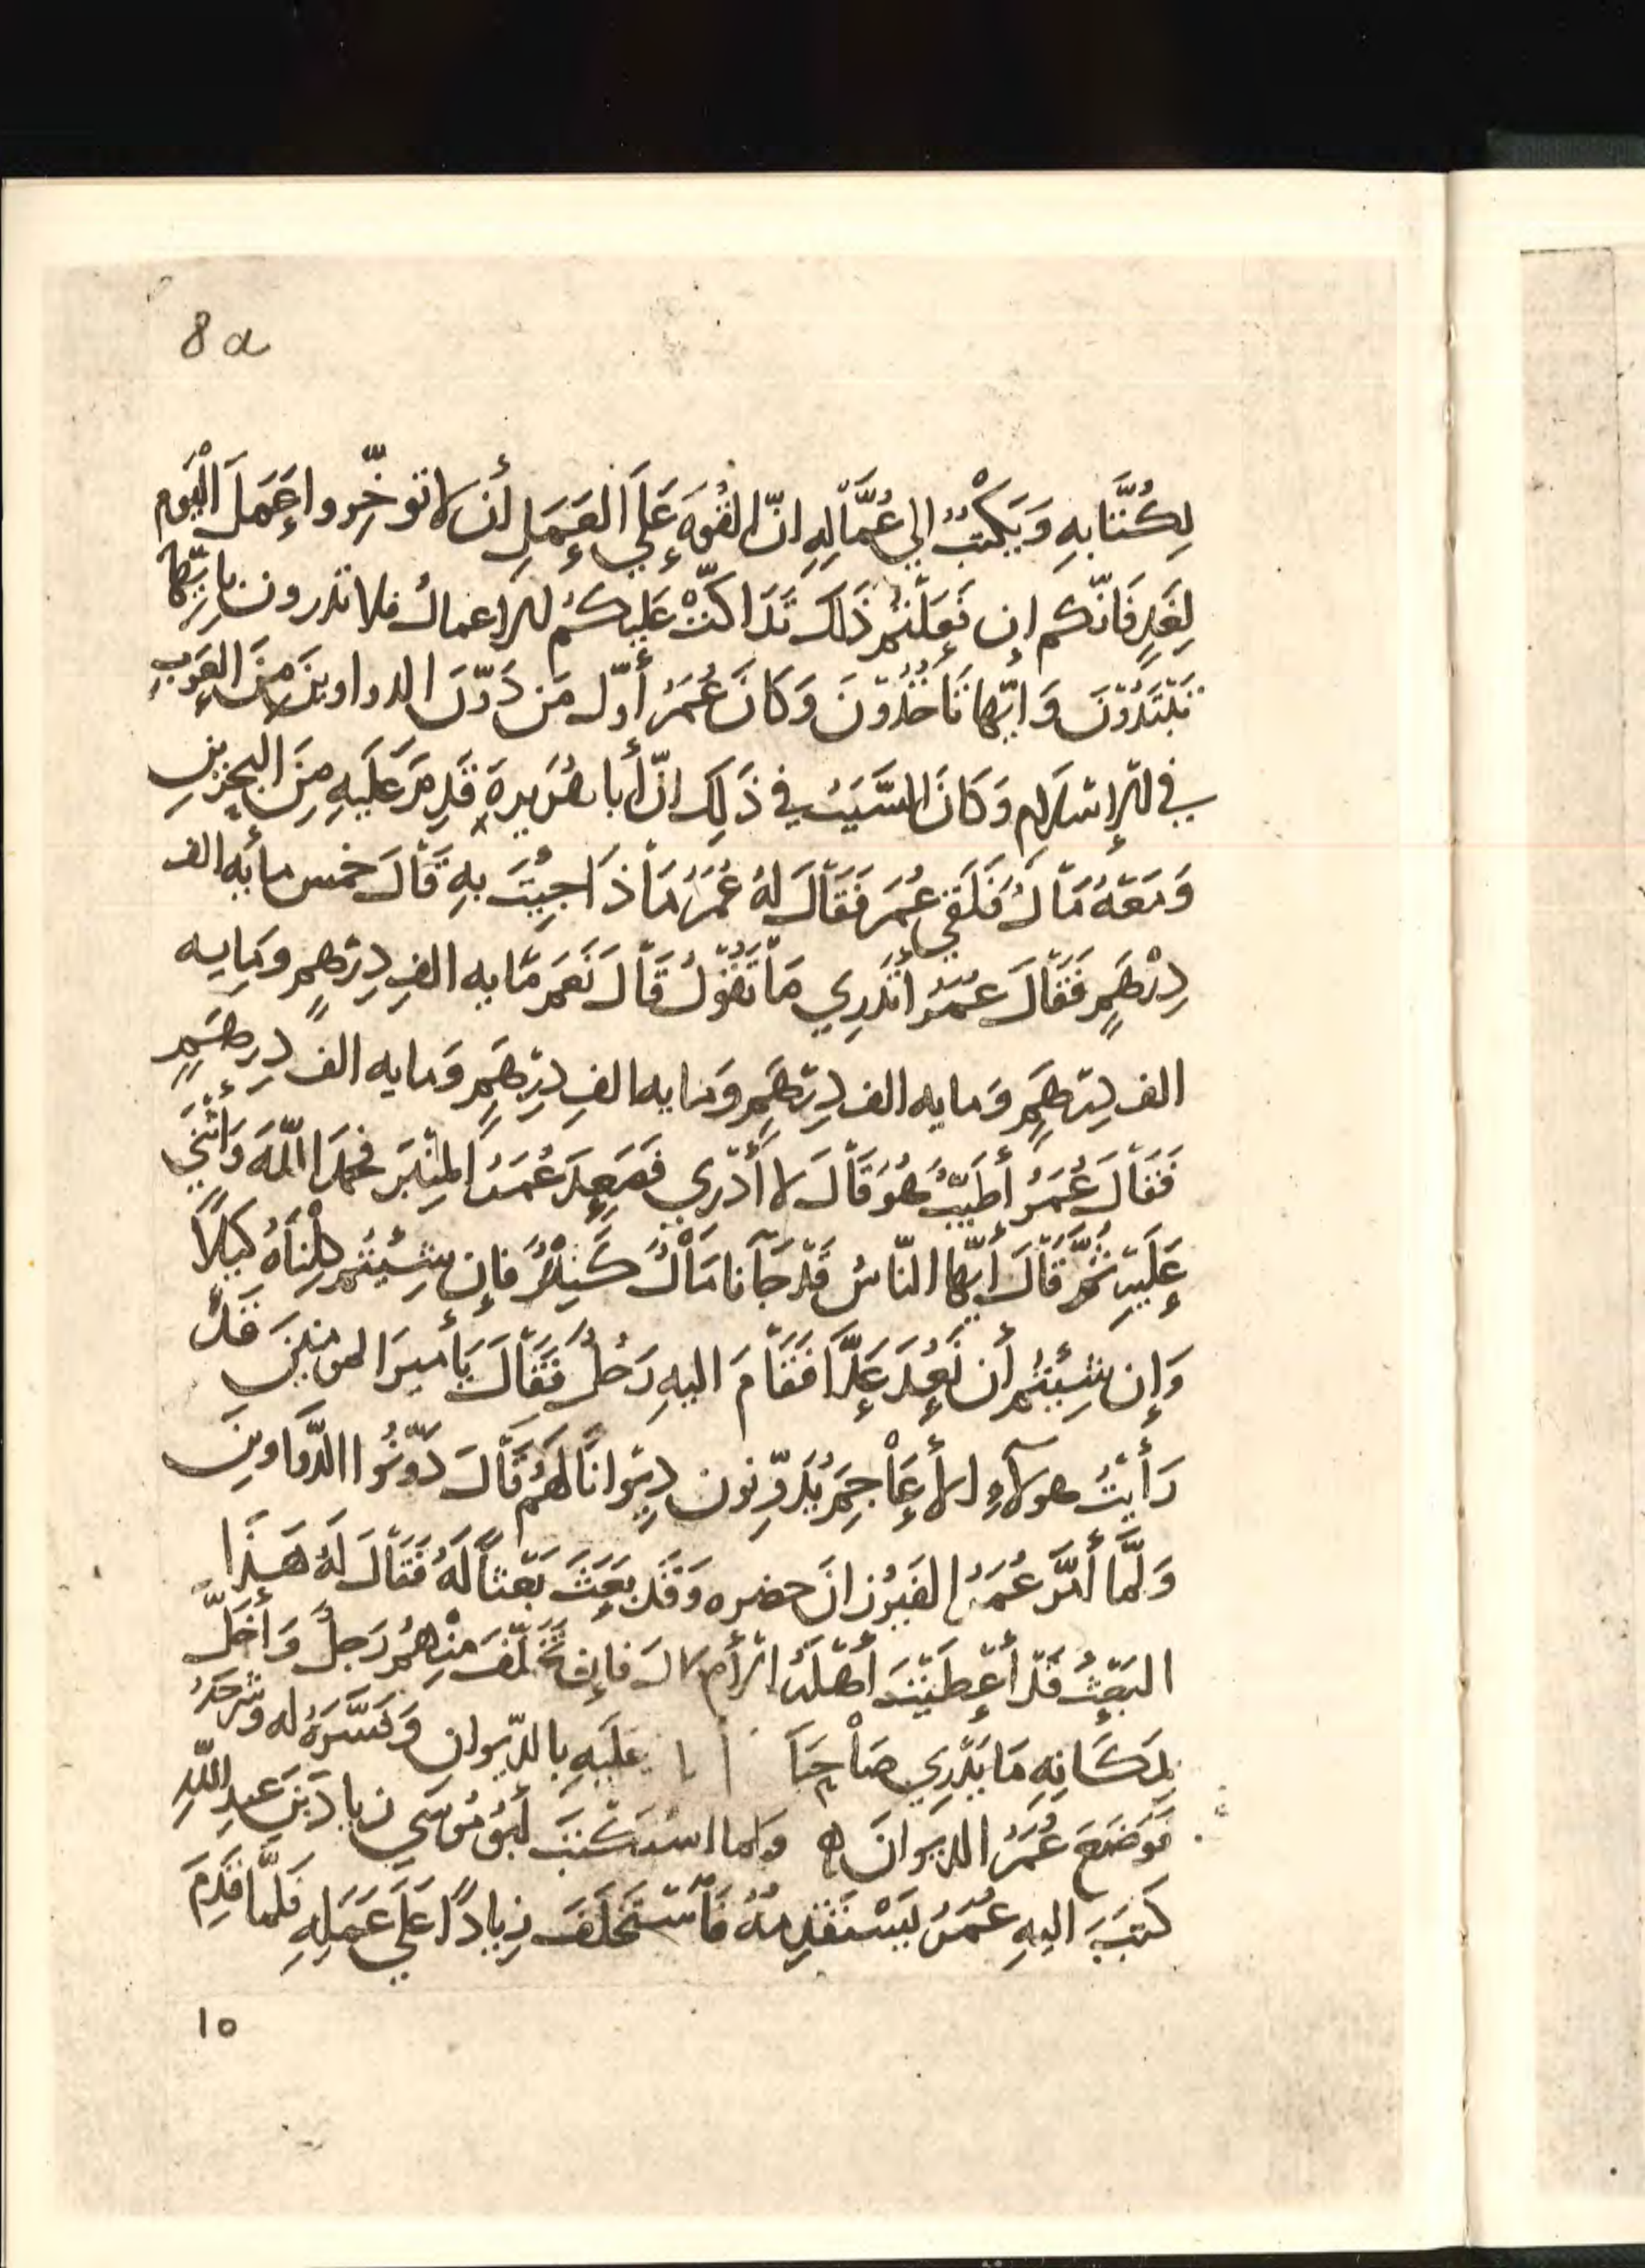 8a
لِكُتَّابِهِ وَيَكْتُبُ الي عُمَّالِهِ انّ القُوهَ عَلَي العَمَلِ أن لا توخِّروا عَمَلَ الْيَوم
لِغَدٍ فَانّكم ان فَعَلْتُم ذَلكَ تَدَاكّتْ عَلَيكُم الاعمالُ فلا تدرون بايّها
تَبْتَدُونَ وَايّها تَاخُذُونَ وَكَانَ عُمَرُ أوّل مَن دَوّنَ الدواوينَ مِنَ العَرَبِ
في الإسْلامِ وَكَانَ السَّبَبُ في ذَلِكَ انّ أبا هُرَيرةَ قَدِمَ عَلَيهِ مِنَ البحرَينِ
وَمَعَهُ مَالٌ فَلَقي عُمَرَ فَقَالَ لهُ عُمَرُ مَاذَا جِيتَ بهِ قَالَ خمس مأيه الف
دِرْهَمٍ فَقَالَ عُمَرُ أتَدرِي مَا تَقُولُ قَالَ نَعَم مَايه الفِ دِرْهمٍ ومَايه
الف دِرهَمٍ وَمايه الف دِرْهَمٍ ومايه الفِ دِرْهَمٍ وَمايه الف دِرهَمٍ
فَقَالَ عُمَرُ أطَيّبٌ هُوَ قَالَ لا أدْرِي فَصَعِدَ عُمَرُ المِنْبَرَ فحمَدَ اللّهَ وَأثْنَي
عَلَيهِ ثُمَّ قَالَ أيّها النّاسُ قَدْ جَآنا مَالٌ كَثِيرٌ فإن شِيْتُم كِلْنَاهُ كَيلاً
وَإن شِيْتُم أن نَعُدَ عَدًّا فَقَامَ اليهِ رَجُلٌ فَقَالَ يَأميرَ المومنينَ قَدْ
رَأيتُ هولآءِ الأعَاجِمَ يُدَوِّنون دِيوَاناً لَهُم قَالَ دَوّنُوا الدَّوَاوينَ
وَلَمَّا أمَرَ عُمَرُ الفَيرُزانَ حضره وَقَد بَعَثَ بَعْثاً لَهُ فَقَالَ لَهُ هَذا
البَعْثُ قَدْ أعْطَيْتَ أهْلَهُ الأموالَ فإن تَخَلّفَ مِنْهُم رَجلٌ وَأخَلّ
بِمَكَانِهِ مَا يَدْرِي صَاحِبَا عَلَيهِ بالدّيوان وَفَسَّرَهُ له وَشَرَحَهُ
فَوَضَعَ عُمَرُ الديوَانَ ه وَلما اسْتَكْتَبَ أبُو مُوسَي زيادَ بَن عبدِ اللّهِ
كَتَبَ اليهِ عُمَرُ يَسْتَقْدِمهُ فَاسْتَخلَفَ زِيادًا عَلَي عَمَلِهِ فَلَمَّا قَدِمَ
١٥